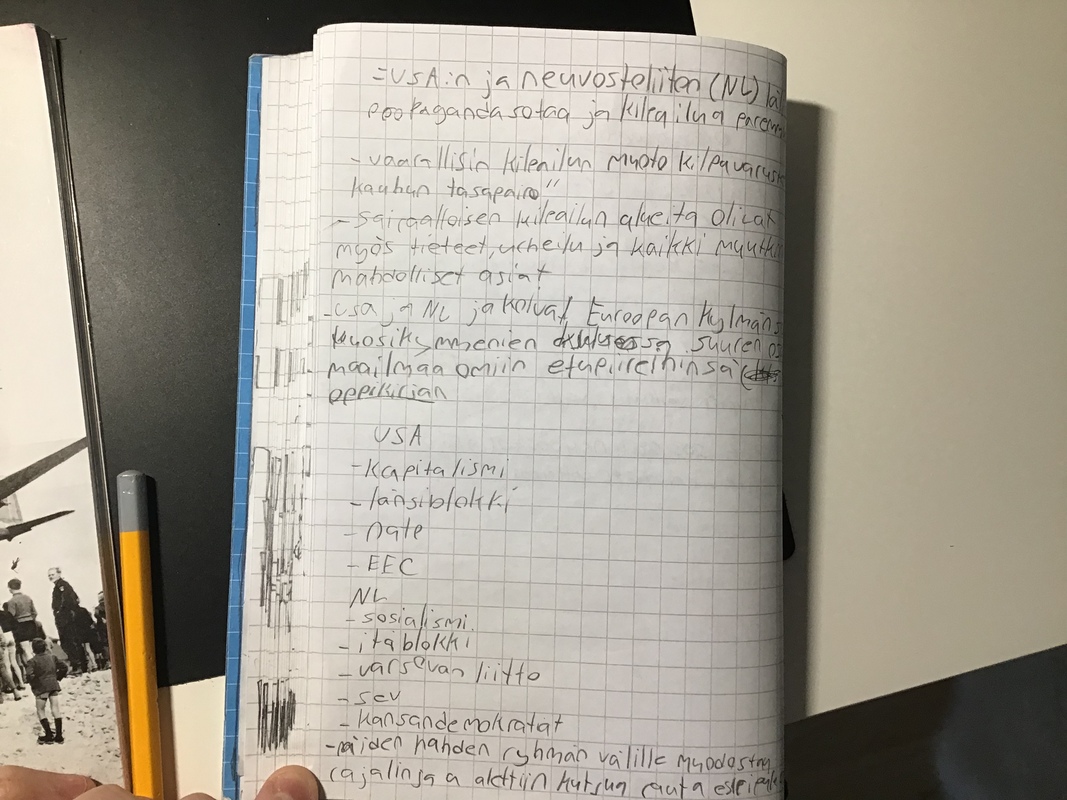 =USA:n ja neuvostoliiton (NL)
propagandasotaa ja kilpailua
- vaarallisin kilpailun muoto
kauhun tasapaino"
- sairaalloisen kilpailun alueita olivat
myös tieteet, urheilu ja kaikki muutkin
mahdolliset asiat
- usa ja NL jakoivat Euroopan kylmän s
vuosikymmenien suuren os
maailmaa omiin etupiireihinsä (
oppikirjan
USA
- kapitalismi
- länsiblokki
- nato
- EEC
NL
- sosialismi
- itäblokki
- varsovan liitto
- sev
- kansandemokratat
- näiden kahden ryhmän välille muodostu
rajalinja a alettiin kutsua rauta